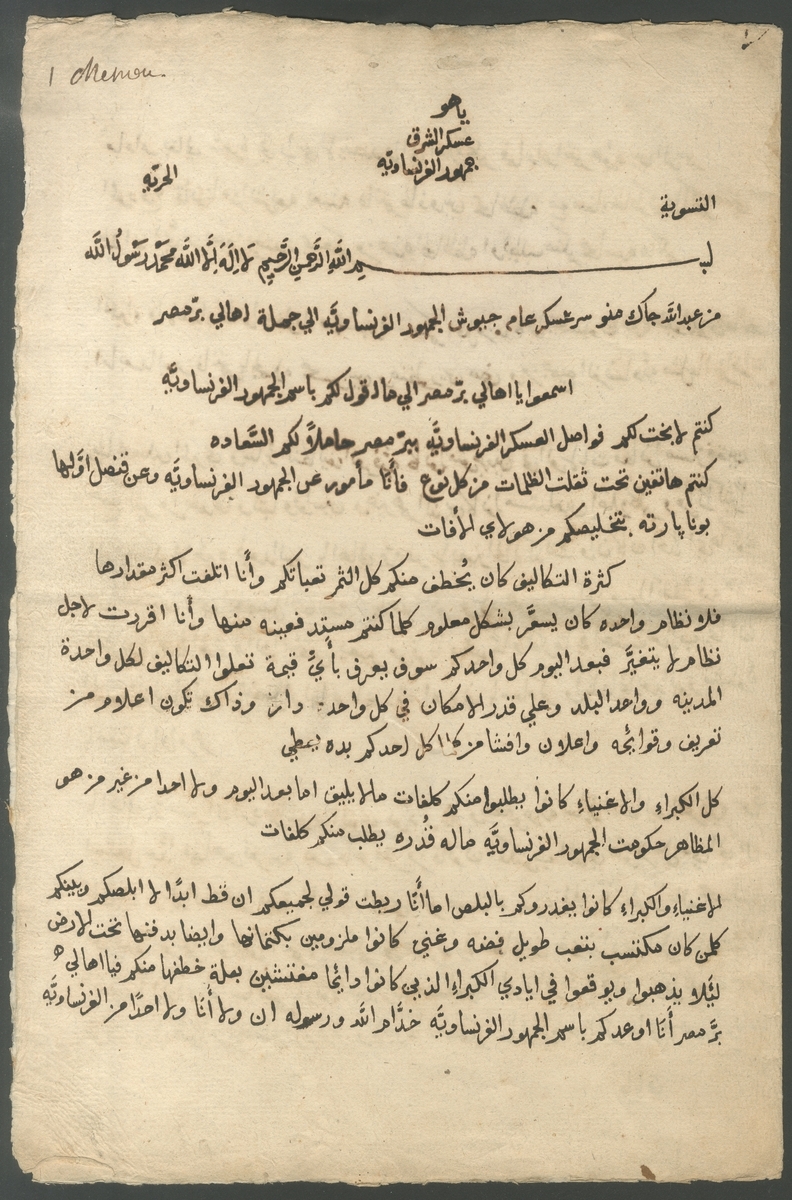 1 Menou
ياهو
عسكر الشرق
جمهور الفرنساويّه
الحريّه
التسوية
بسم اللّه الرَّحمن الرَّحيم لا إله إلّا اللّه محمّد رسولُ اللّه
من عبد اللّه جاك منو سر عسكر عام جيوش الجمهور الفرنساويَّه الي جملة اهالي برّ مصر
اسمعوا يا اهالي برّ مصر الي ما اقول لكم باسم الجمهور الفرنساويَّه
كنتم لا بخت لكم فواصل العسكر الفرنساويَّه ببرّ مصر حاملاً لكم السَّعاده
كنتم هاتفين تحت ثقلت الظلمات من كل نوع فأنَا مأمور عن الجمهور الفرنساويَّه وعن قنصل اوَّلها
بونا پارته بتخليصكم من هولاي الأفات
كثرة التكاليف كان يُخطف منكم كل الثمر تعباتكم وأنا اتلفت اكثر مقدارها
فلا نظام واحده كان يسعَّر بشكل معلوم كلما كنتم مستدفعينه منها وأنا اقررت لاجل
نظام لا يتغيَّر فبعد اليوم كل واحدكم سوف يعرف بأيّ قيمة تعلوا التكاليف لكل واحدة
المدينه وواحد البلد وعلي قدر الامكان في كل واحد دار وذاك تكون اعلام من
تعريف وقوائمه واعلان وافشا من كل احدكم بده يعطي
كل الكبراءِ والاغنياءِ كانوا يطلبوا منكم كلفات ما لا يليق اما بعد اليوم ولا احدا من غير من هو
المظاهر حكومت الجمهور الفرنساويَّه ما له قُدره يطلب منكم كلفات
الاغنياءِ والكبراءِ كانوا يغدروكم بالبلص اما أنَا ربطت قولي لجميعكم ان قط ابدًا لا ابلصكم وبينكم
كلمن كان مكتسب بتعب طويل فضه وغنيّ كانوا ملزومين بكتمانها وايضا بدفنها تحت الارض
ليَّلا يذهبوا ويوقعوا في ايادي الكبراءِ الذين كانوا دايمًا مفتنشين بعلة خطفها منكم فيا اهالي
برّ مصر أنَا اوعدكم باسم الجمهور الفرنساويَّه خدَّام اللّه ورسوله ان ولا أنَا ولا احدًا من الفرنساويَّه